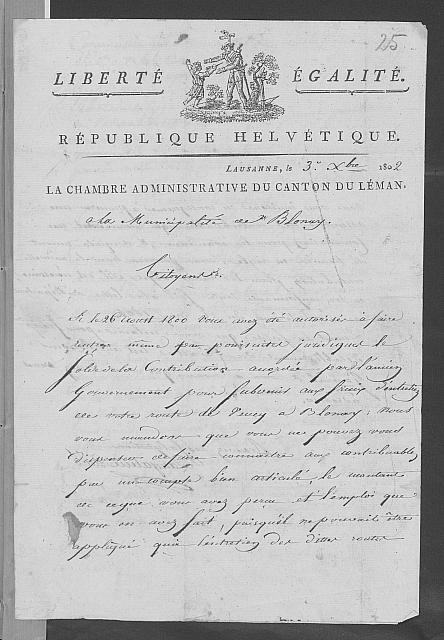 25
LIBERTÉ ÉGALITÉ.
RÉPUBLIQUE HELVÉTIQUE.
LAUSANNE, le 3.e Xbre 1802
LA CHAMBRE ADMINISTRATIVE DU CANTON DU LÉMAN.
a la Municipalité de Blonay.
Citoyens
Si le 26 aoust 1800 vous avez été autorisés à faire
rentrer même par poursuites juridiques le
solde de la Contribution accordée par l'ancien
Gouvernement pour subvenir aux fraix d'entretien
de votre route de Vevey à Blonay; Nous
vous mandons que vous ne pouvez vous
dispenser de faire connaitre aux contribuables
par un compte bien articulé, le montant
de ce que vous avez perçu et l'emploi que
vous en avez fait, puisqu'il ne pourrait être
appliqué qu'à l'entretien des dites routes